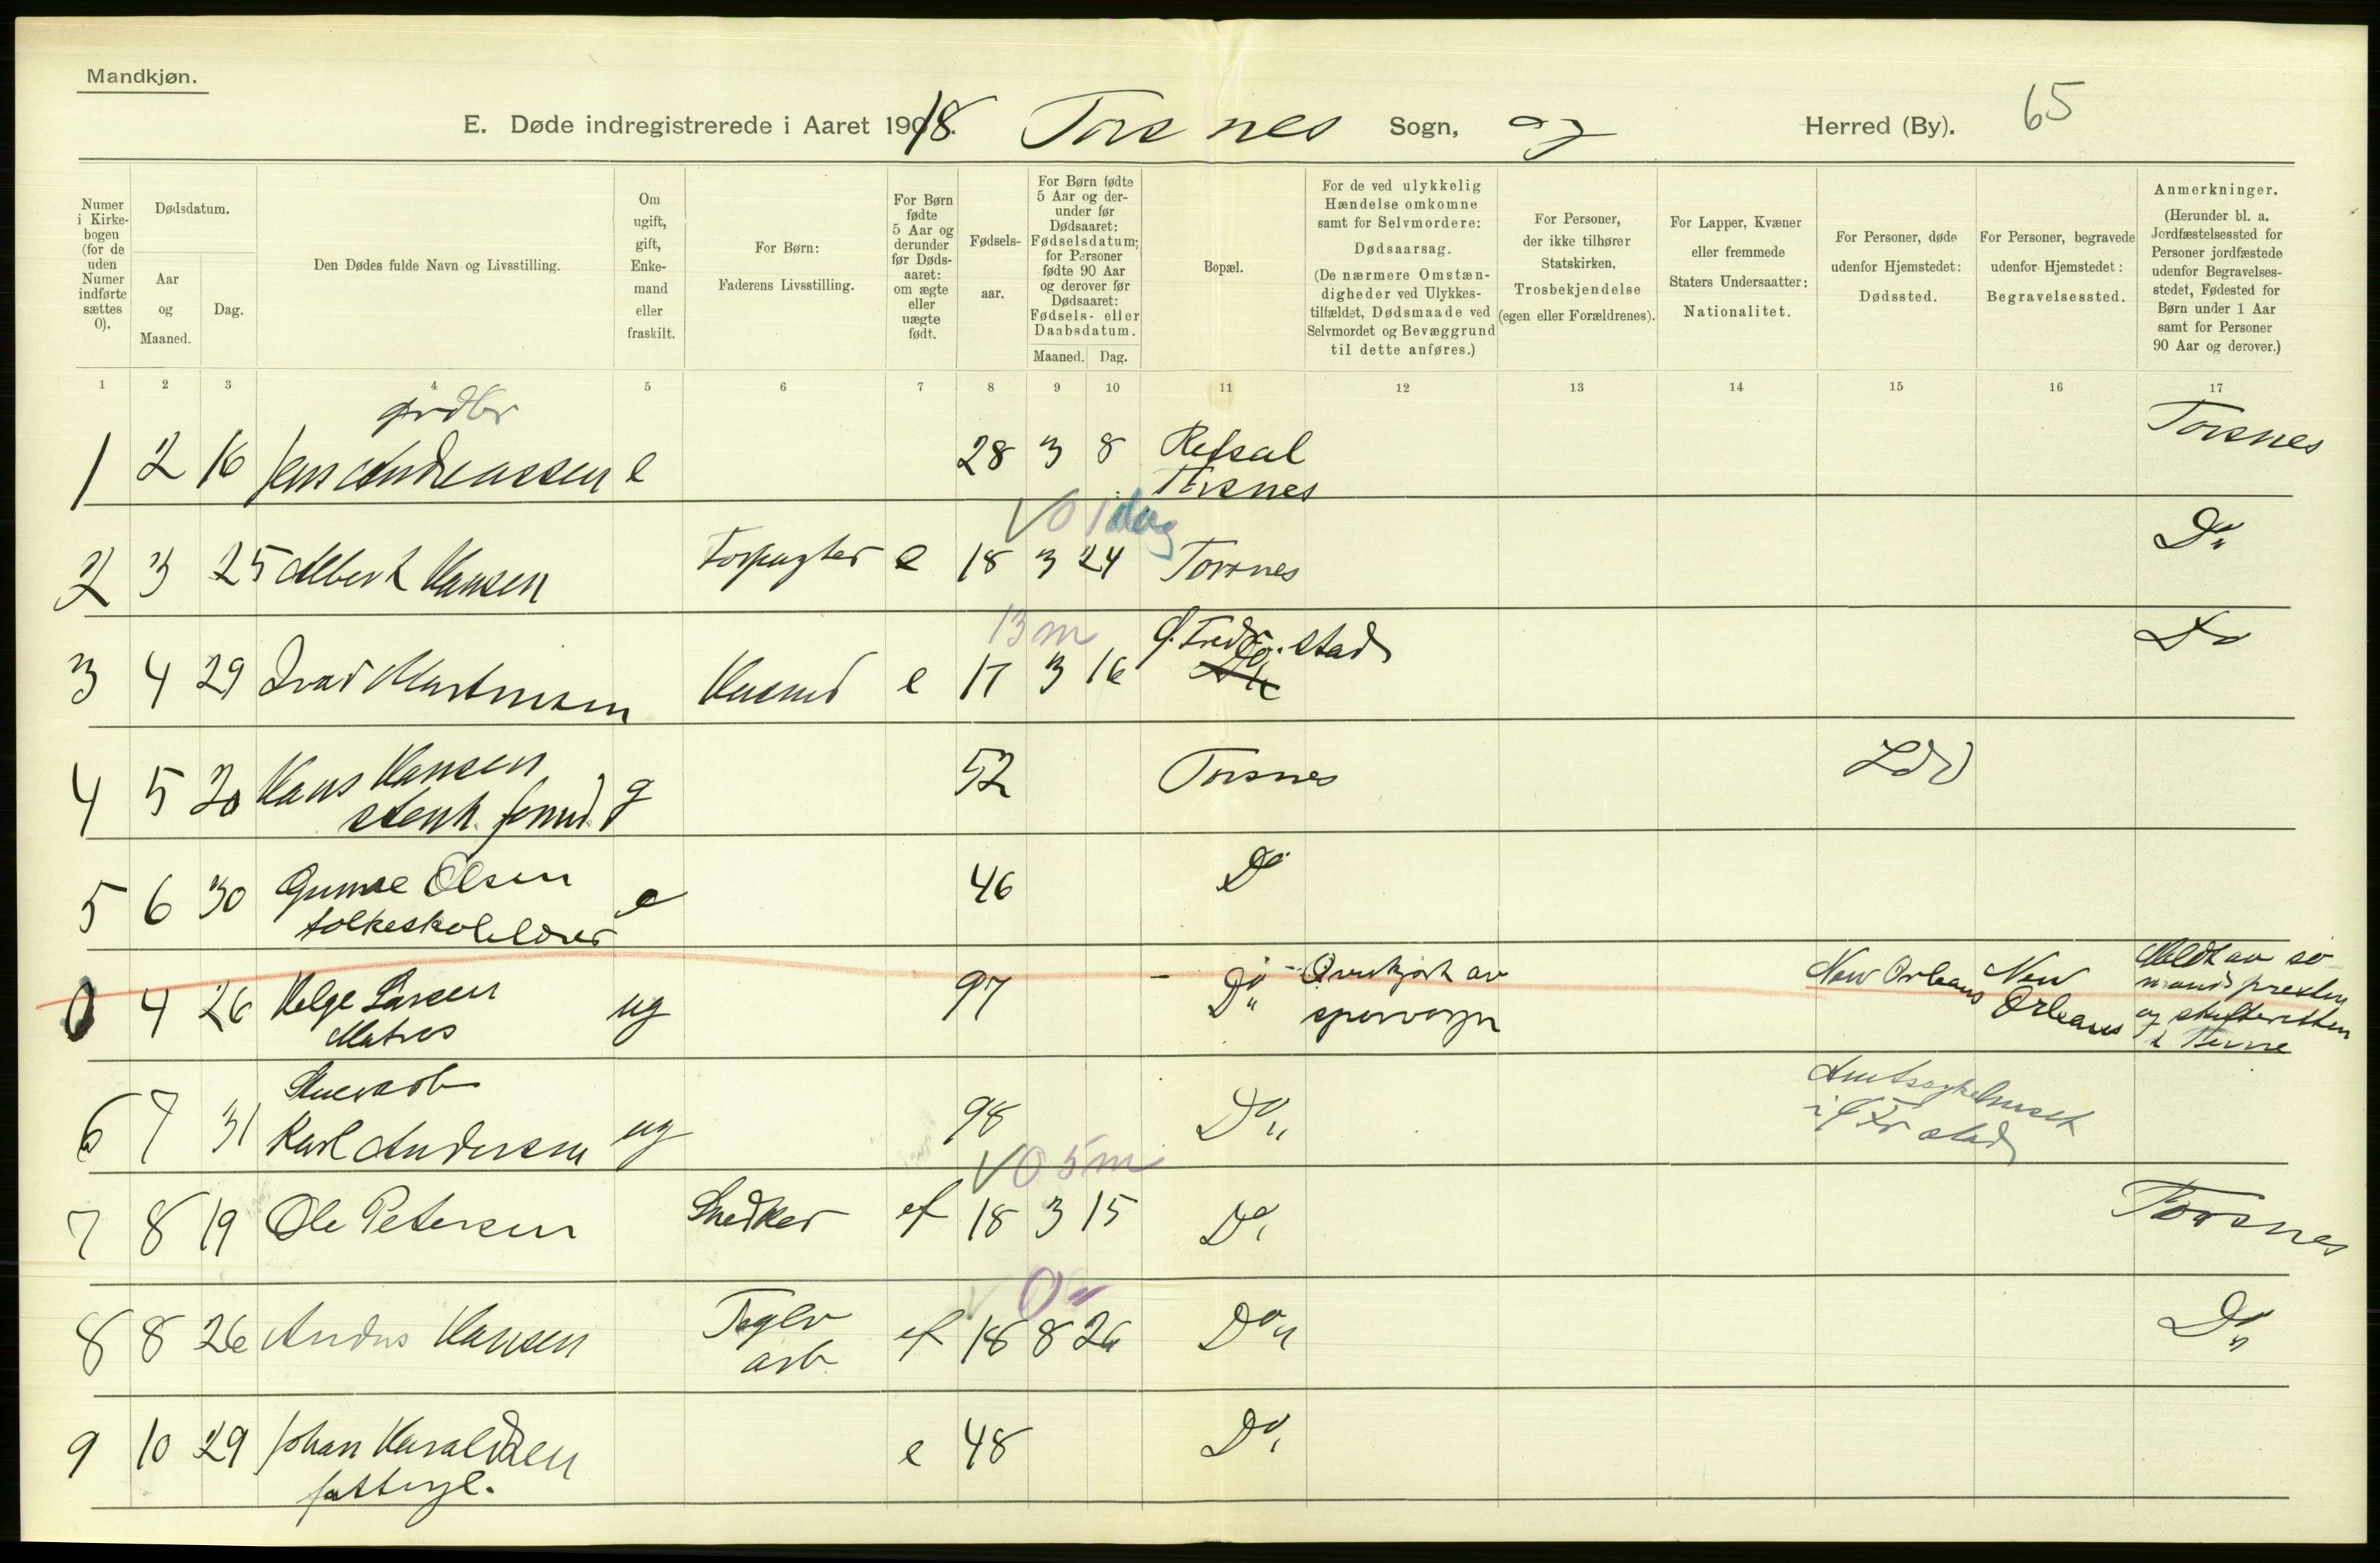 Mandkjøn.
E. Døde indregistrerede i Aaret 1918. Torsnes Sogn, og Herred (By). 65
Numer i Kirke-bogen (for de uden Numer indførte sættes 0).
Dødsdatum.
Aar og Maaned.
Dag.
Den Dødes fulde Navn og Livsstilling.
Om ugift, gift, Enke-mand eller fraskilt.
For Børn: Faderens Livsstilling.
For Børn fødte 5 Aar og derunder før Døds-aaret: om ægte eller uægte født.
Fødsels-aar.
For Børn fødte 5 Aar og der-under før Dødsaaret: Fødselsdatum; for Personer fødte 90 Aar og derover før Dødsaaret: Fødsels- eller Daabsdatum.
Maaned. Dag.
Bopæl.
For de ved ulykkelig Hændelse omkomne samt for Selvmordere: Dødsaarsag. (De nærmere Omstæn-digheder ved Ulykkes-tilfældet, Dødsmaade ved Selvmordet og Bevæggrund til dette anføres.)
For Personer, der ikke tilhører Statskirken, Trosbekjendelse (egen eller Forældrenes).
For Lapper, Kvæner eller fremmede Staters Undersaatter: Nationalitet.
For Personer, døde udenfor Hjemstedet: Dødssted.
For Personer, begravede udenfor Hjemstedet: Begravelsessted.
Anmerkninger. (Herunder bl. a. Jordfæstelsessted for Personer jordfæstede udenfor Begravelses-stedet, Fødested for Børn under 1 Aar samt for Personer 90 Aar og derover.)
1 2 3 4 5 6 7 8 9 10 11 12 13 14 15 16 17
grdbr
1 2 16 Jens Andreassen e 28 3 8 Refsal Torsnes Torsnes
0 1 dag
2 3 25 Albert Hansen Forpagter e 18 3 24 Torsnes Do
13 m
3 4 29 Ivar Martinsen Husmd e 17 3 16 Do Ø. Fredr.stad Do
4 5 20 Hans Hansen g 52 Torsnes
stenh. formd.
5 6 30 Gunnar Olsen e 46 Do
folkeskolelærer
0 4 26 Helge Larsen ug 97 - Do - Overkjørt av sporvogn New Orleans New Orleans Meldt av sømandspresten og skifteretten i Tune
Matros
6 7 31 Karl Andersen ug 98 Do Amtssykehuset i Ø Fr stad
0 5 m
7 8 19 Ole Petersen Snedker ef 18 3 15 Do Torsnes
0
8 8 26 Anders Hansen Teglv arb ef 18 8 26 Do Do
9 10 29 Johan Haraldsen e 48 Do